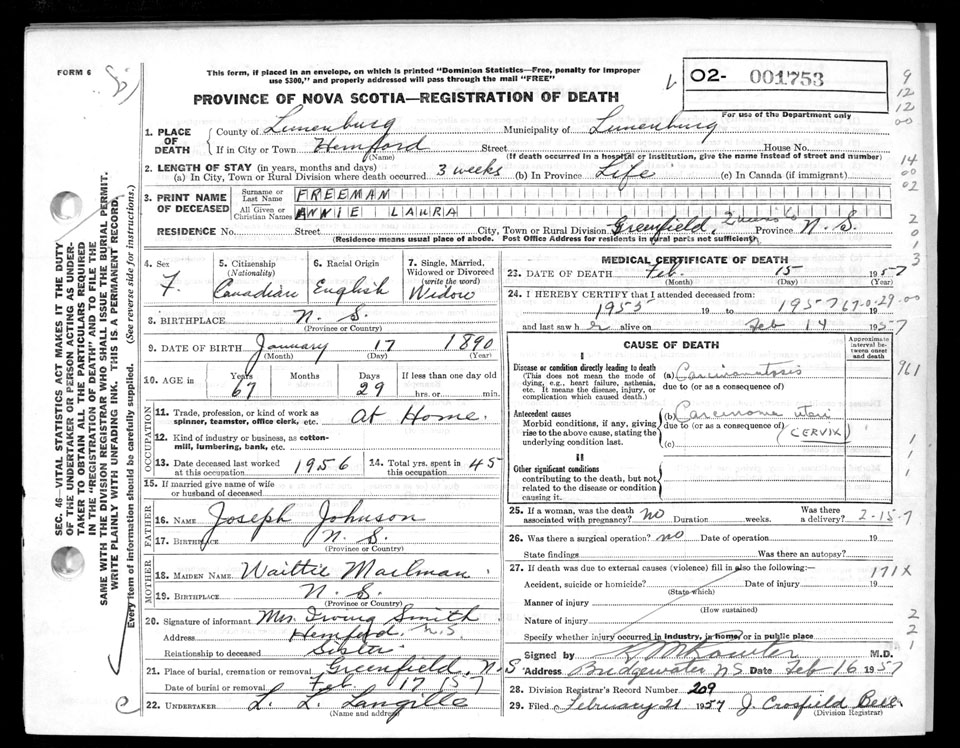 FORM 6
This form, if placed in an envelope, on which is printed "Dominion Statistics—Free, penalty for improper
use $300," and properly addressed will pass through the mail "FREE"
O2- 001753
For use of the Department only
PROVINCE OF NOVA SCOTIA—REGISTRATION OF DEATH
1. PLACE OF DEATH { County of Lunenburg Municipality of Lunenburg
If in City or Town Hemford Street House No.
(Name) (If death occurred in a hospital or institution, give the name instead of street and number)
2. LENGTH OF STAY (in years, months and days)
(a) In City, Town or Rural Division where death occurred 3 weeks (b) In Province Life (c) In Canada (if immigrant)
3. PRINT NAME OF DECEASED { Surname or Last Name FREEMAN
All Given or Christian Names ANNIE LAURA
RESIDENCE No. Street City, Town or Rural Division Greenfield, Province N.S.
(Residence means usual place of abode. Post Office Address for residents in rural parts not sufficient)
4. Sex F.
5. Citizenship (Nationality) Canadian
6. Racial Origin English
7. Single, Married, Widowed or Divorced (write the word) Widow
8. BIRTHPLACE N. S.
(Province or Country)
9. DATE OF BIRTH January 17 1890
(Month) (Day) (Year)
10. AGE in Years 67 Months Days 29 If less than one day old hrs. or min.
OCCUPATION
11. Trade, profession, or kind of work as spinner, teamster, office clerk, etc. At Home.
12. Kind of industry or business, as cotton-mill, lumbering, bank, etc.
13. Date deceased last worked at this occupation 1956 14. Total yrs. spent in this occupation 45
15. If married give name of wife or husband of deceased
FATHER
16. NAME Joseph Johnson
17. BIRTHPLACE N. S.
(Province or Country)
MOTHER
18. MAIDEN NAME Waittie Mailman
19. BIRTHPLACE N. S.
(Province or Country)
20. Signature of informant Mrs. Irving Smith
Address Hemford, N.S.
Relationship to deceased Sister
21. Place of burial, cremation or removal Greenfield, N.S
Date of burial or removal Feb. 17 1957
22. UNDERTAKER L. L. Langille
(Name and address)
MEDICAL CERTIFICATE OF DEATH
23. DATE OF DEATH Feb. 15 1957
(Month) (Day)
24. I HEREBY CERTIFY that I attended deceased from:
1955 19 to 1957 19 67-0-29-00
and last saw her alive on Feb 14 1957
CAUSE OF DEATH
Approximate interval between onset and death
I
Disease or condition directly leading to death (a) Carcinomatosis
(This does not mean the mode of dying, e.g., heart failure, asthenia, etc. It means the disease, injury, or complication which caused death.)
due to (or as a consequence of)
Antecedent causes (b) Carcinoma uteri
Morbid conditions, if any, giving rise to the above cause, stating the underlying condition last.
due to (or as a consequence of)
(CERVIX)
(c)
II
Other significant conditions
contributing to the death, but not related to the disease or condition causing it.
25. If a woman, was the death associated with pregnancy? No Duration weeks. Was there a delivery? 2-15-7
26. Was there a surgical operation? no Date of operation 19
State findings Was there an autopsy?
27. If death was due to external causes (violence) fill in also the following: 171X
Accident, suicide or homicide? Date of injury 19
(State which)
Manner of injury
(How sustained)
Nature of injury
Specify whether injury occurred in industry, in home, or in public place
Signed by M.D.
Address Bridgewater N.S. Date Feb 16 1957
28. Division Registrar's Record Number 209
29. Filed February 21 1957 J. Crosfield Bell
(Division Registrar)
SEC. 46—VITAL STATISTICS ACT MAKES IT THE DUTY
OF THE UNDERTAKER OR PERSON ACTING AS UNDER-
TAKER TO OBTAIN ALL THE PARTICULARS REQUIRED
IN THE "REGISTRATION OF DEATH" AND TO FILE THE
SAME WITH THE DIVISION REGISTRAR WHO SHALL ISSUE THE BURIAL PERMIT.
WRITE PLAINLY WITH UNFADING INK. THIS IS A PERMANENT RECORD,
Every item of information should be carefully supplied. (See reverse side for instructions.)
9
12
12
00
14
00
02
2
0
1
3
961
1
1
1
2
2
1